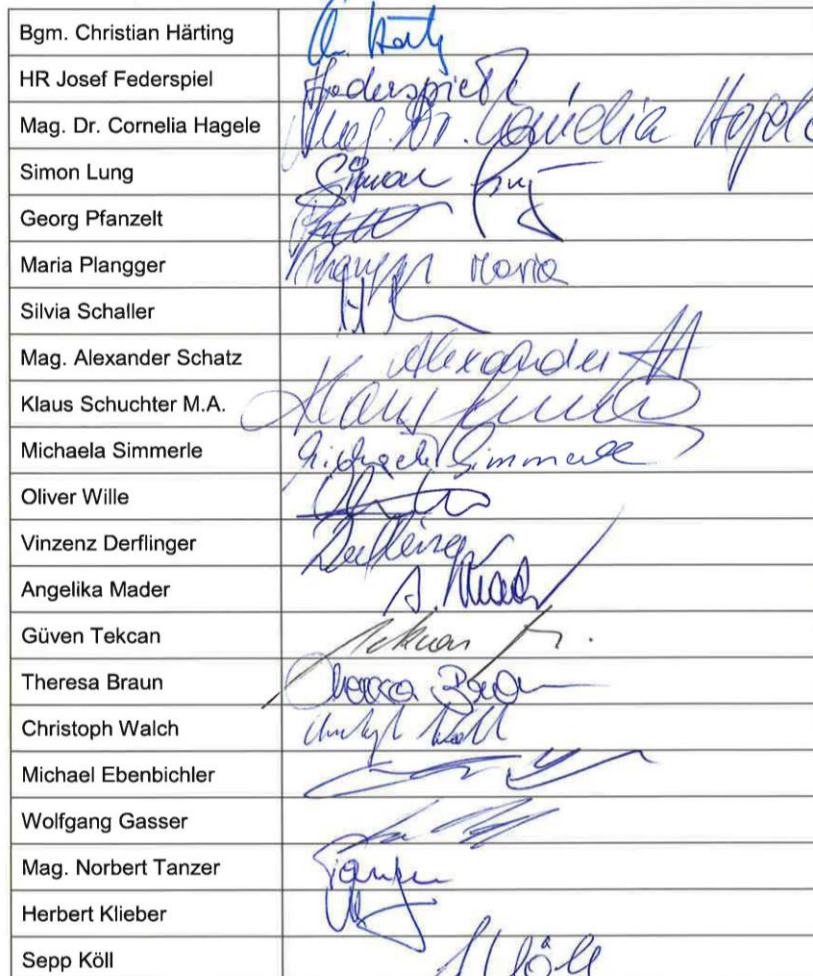 Bgm. Christian Härting
HR Josef Federspiel Federspiel
Mag. Dr. Cornelia Hagele Mag. Dr. Cornelia Hagele
Simon Lung Simon Lung
Georg Pfanzelt
Maria Plangger Plangger Maria
Silvia Schaller
Mag. Alexander Schatz Alexander
Klaus Schuchter M.A. Klaus
Michaela Simmerle Michaela Simmerle
Oliver Wille
Vinzenz Derflinger Derflinger
Angelika Mader A. Mader
Güven Tekcan Tekcan
Theresa Braun Theresa Braun
Christoph Walch
Michael Ebenbichler
Wolfgang Gasser
Mag. Norbert Tanzer Tanzer
Herbert Klieber
Sepp Köll Köll